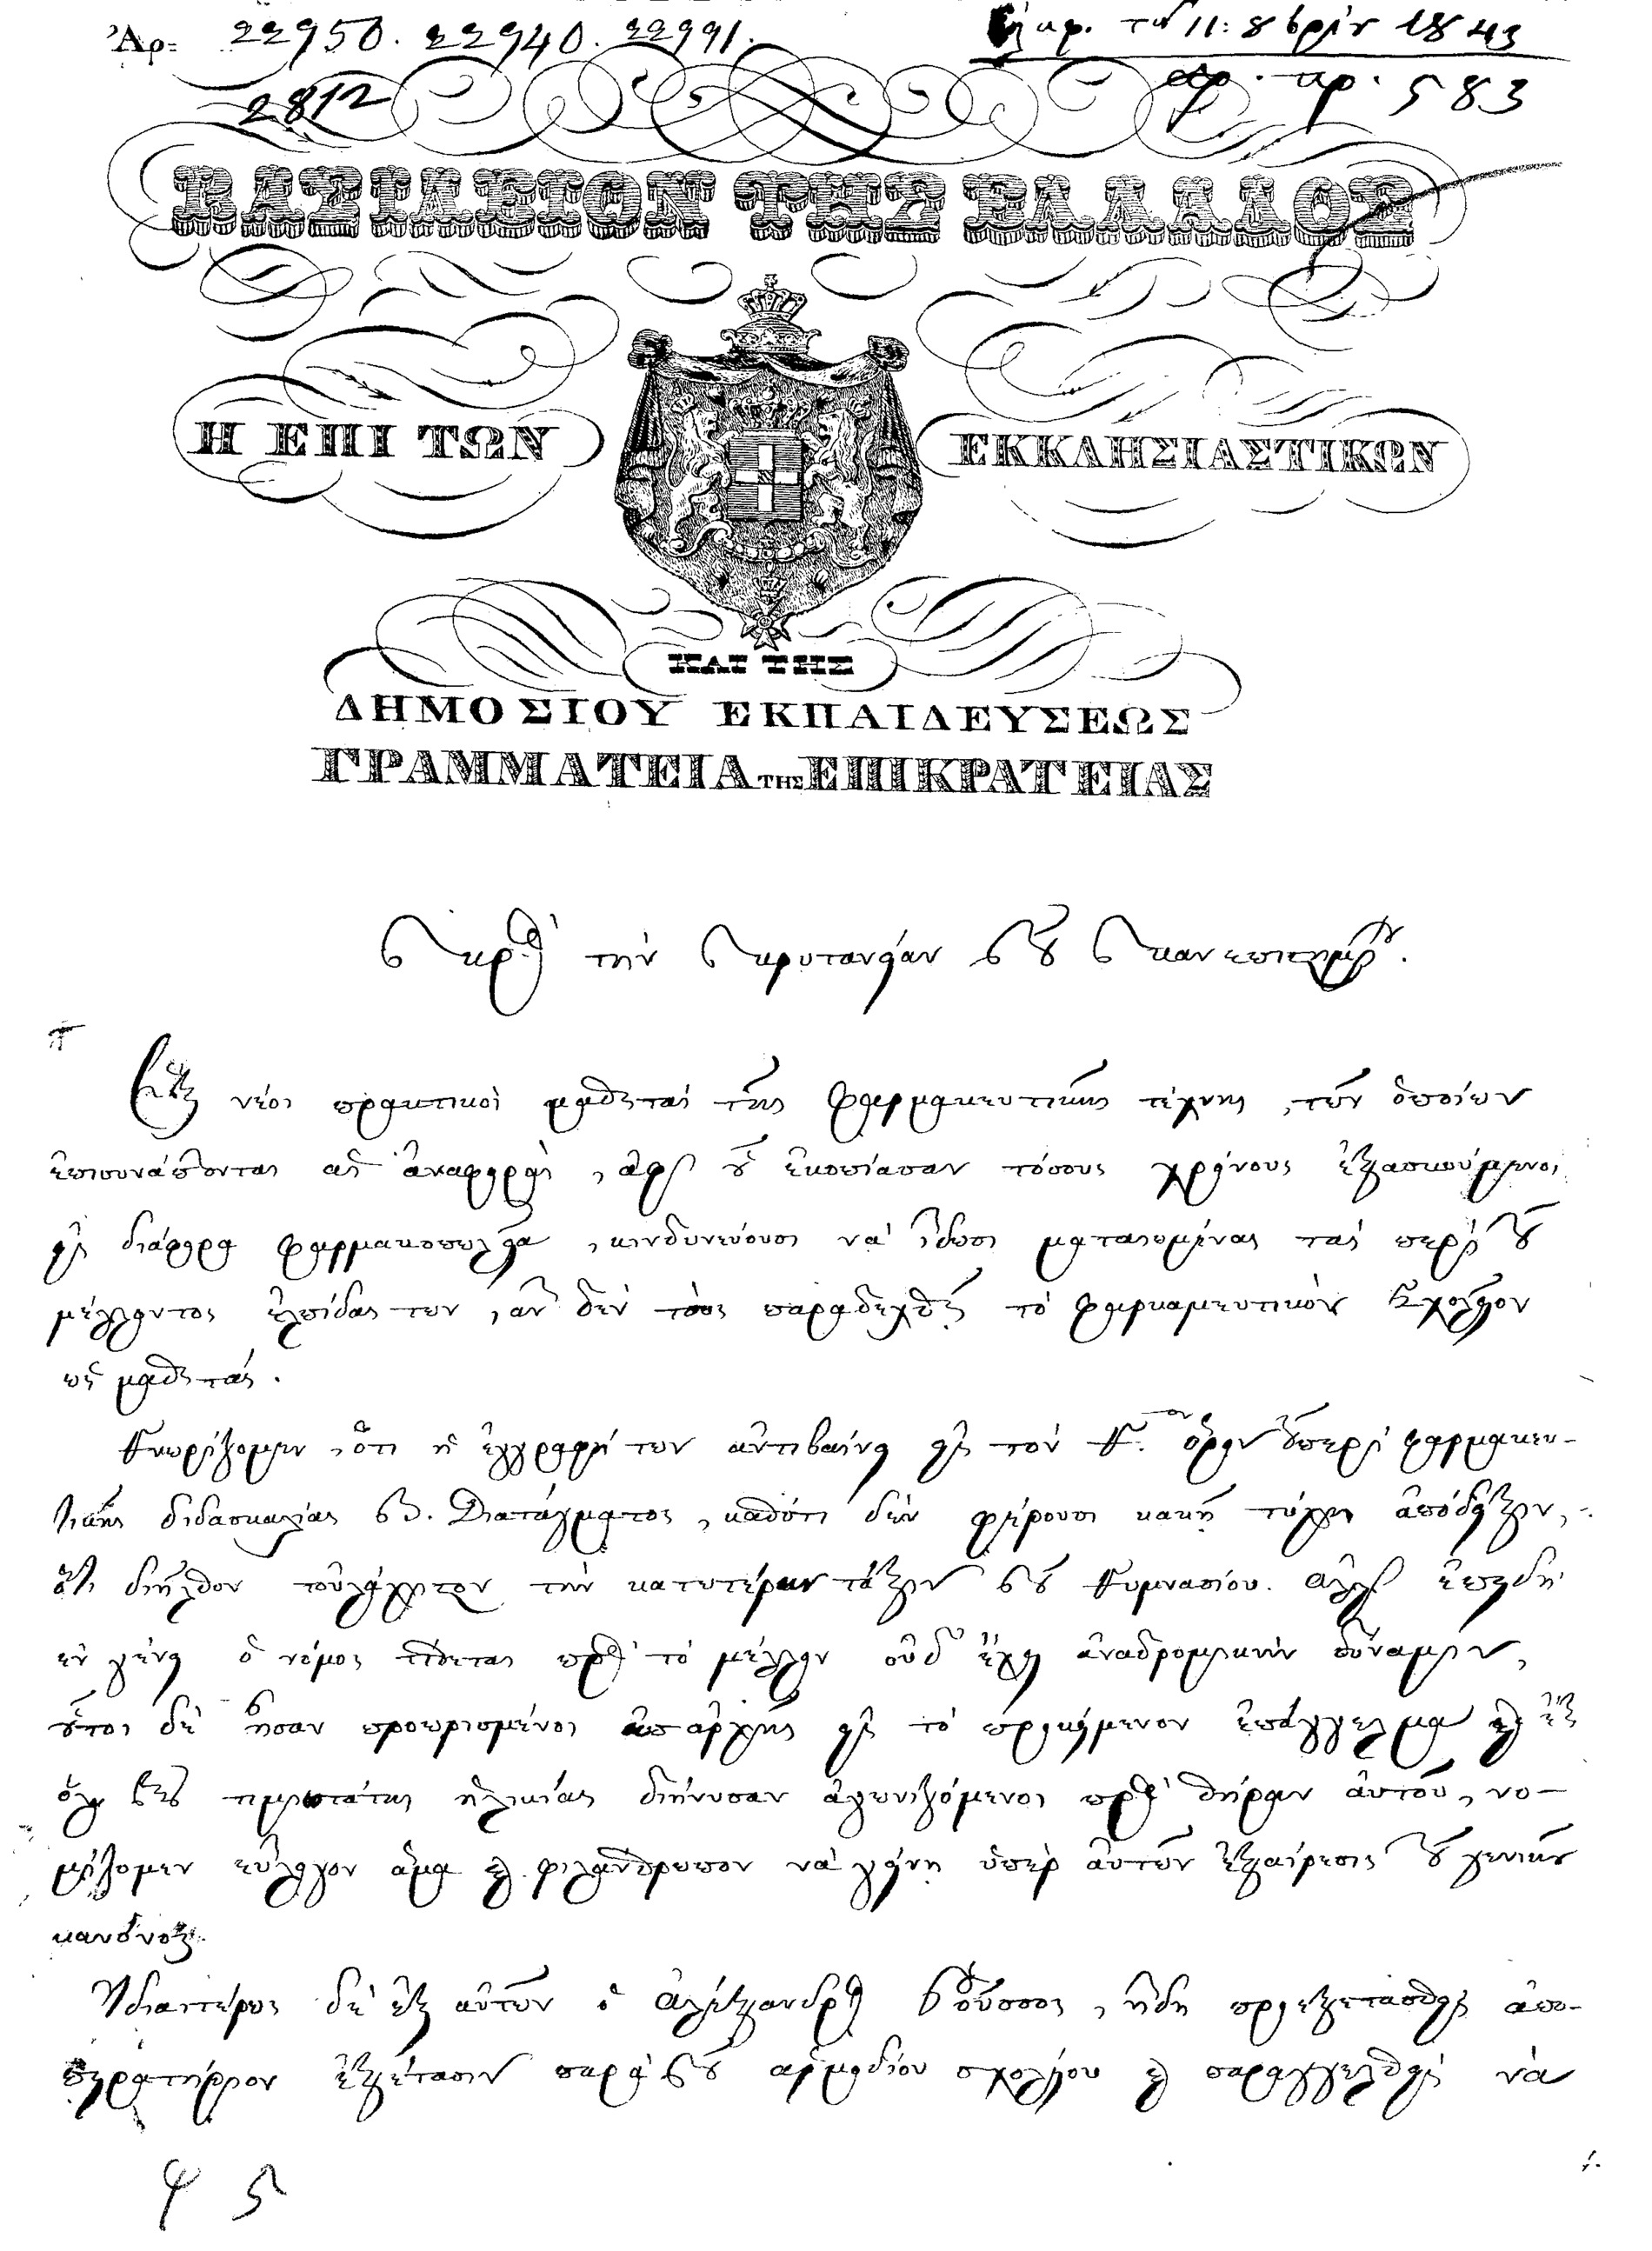 Ἀρ: 22950. 22940. 22991.
2812
τὴν 11: 8βρίου 1843
ἀρ. πρ. 583
ΒΑΣΙΛΕΙΟΝ ΤΗΣ ΕΛΛΑΔΟΣ
Η ΕΠΙ ΤΩΝ ΕΚΚΛΗΣΙΑΣΤΙΚΩΝ
ΚΑΙ ΤΗΣ
ΔΗΜΟΣΙΟΥ ΕΚΠΑΙΔΕΥΣΕΩΣ
ΓΡΑΜΜΑΤΕΙΑ ΤΗΣ ΕΠΙΚΡΑΤΕΙΑΣ
Πρὸς τὴν Πρυτανείαν τοῦ Πανεπιστημίου.
Οἱ ἓξ νέοι πρακτικοὶ μαθηταὶ τῆς φαρμακευτικῆς τέχνης, τῶν ὁποίων
ἐπισυνάπτονται αἱ ἀναφοραὶ, ἀφ' οὗ ἐκοπίασαν τόσους χρόνους ἐξασκούμενοι
εἰς διάφορα φαρμακοπωλεῖα, κινδυνεύουσι νὰ ἴδωσι ματαιωμένας τὰς περὶ τοῦ
μέλλοντος ἐλπίδας των, ἂν δὲν τοὺς παραδεχθῇ τὸ φαρμακευτικὸν Σχολεῖον
ὡς μαθητάς.
Γνωρίζομεν, ὅτι ἡ ἐγγραφή των ἀντιβαίνει εἰς τὸν Γ.ον ὅρον τοῦ περὶ φαρμακευ-
τικῆς διδασκαλίας Β. Διατάγματος, καθότι δὲν φέρουσι κακῇ τύχῃ ἀπόδειξιν,
ὅτι διῆλθον τοὐλάχιστον τὴν κατωτέραν τάξιν τοῦ Γυμνασίου. Ἀλλ' ἐπειδὴ
ἐν γένει ὁ νόμος τίθεται πρὸς τὸ μέλλον οὐδ' ἔχει ἀναδρομικὴν δύναμιν,
οὗτοι δὲ ἦσαν προωρισμένοι ἀπ' ἀρχῆς εἰς τὸ προκείμενον ἐπάγγελμα καὶ ἓξ
ὅλα ἔτη τιμιωτάτης ἡλικίας διήνυσαν ἀγωνιζόμενοι πρὸς θήραν αὐτοῦ, νο-
μίζομεν εὔλογον ἅμα καὶ φιλάνθρωπον νὰ γίνῃ ὑπὲρ αὐτῶν ἐξαίρεσις τοῦ γενικοῦ
κανόνος.
Ἰδιαιτέρως δὲ ἐξ αὐτῶν ὁ Ἀλέξανδρος Ῥοῦσσος, ἤδη προεξετασθεὶς ἀπο-
πειρατήριον ἐξέτασιν παρὰ τοῦ ἁρμοδίου σχολείου καὶ παραγγελθεὶς νὰ